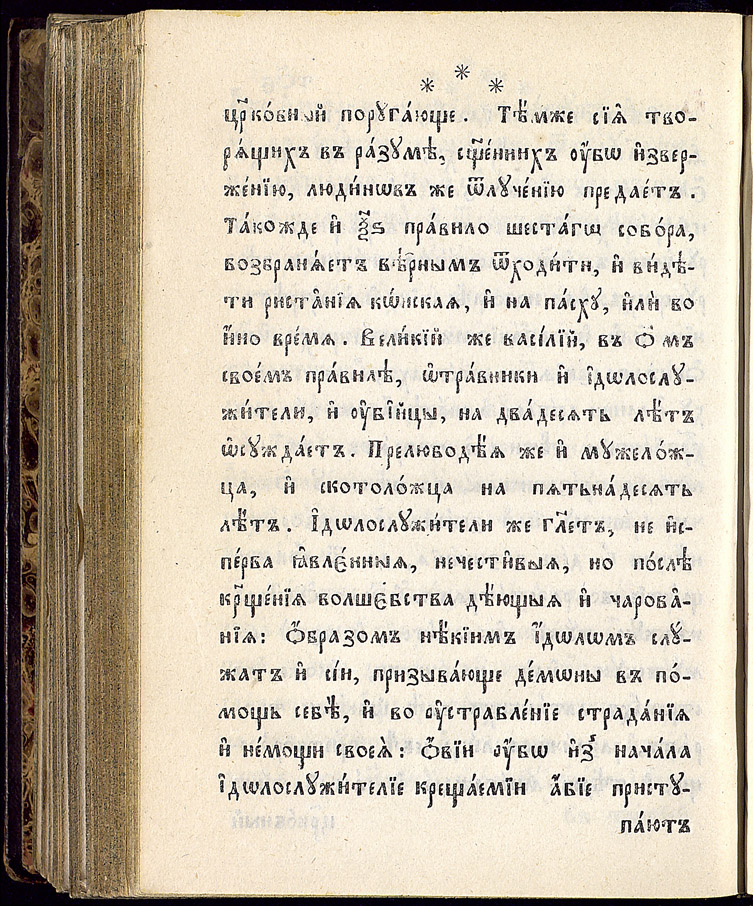 * * *
цр҃ко́вный пꙋрꙋга́юще. Тѣ́мже сїѧ̀ тво-
рѧ́щихъ въ ра́зꙋмѣ, сщ҃е́нныхъ ᲂу҆́бѡ и҆звер-
же́нїю, люди́нѡвъ же ѿлꙋче́нїю предае́тъ.
Та́кожде и҆ ѯ҃ѕ пра́вило шеста́гѡ собо́ра,
возбранѧ́етъ вѣ̑рнымъ ѿходи́ти, и҆ ви́дѣ-
ти риста̑нїѧ кѡ́нскаѧ, и҆ на па́схꙋ, и҆лѝ во
и҆́но вре́мѧ. Вели́кїй же васі́лїй, въ ѻ҃мъ
свое́мъ пра́вилѣ, ѡ҆тра́вники и҆ і҆дѡлослꙋ-
жи́тели, и҆ ᲂу҆бі́йцы, на два́десѧть лѣ́тъ
ѡ҆сꙋжда́етъ. Прелюводѣ́ѧ же и҆ мꙋжело́ж-
ца, и҆ скотоло́жца на пѧтьна́десѧть
лѣ́тъ. І҆дѡлослꙋжи́тели же гл҃етъ, не и҆с-
пе́рва ꙗ҆вле́нныѧ, нечести́выѧ, но по́слѣ
кр҃ще́нїѧ волше́бства дѣ́ющыѧ и҆ чарова̑-
нїѧ: Ѻ҆́бразомъ нѣ́кїимъ і҆́дѡлѡмъ слꙋ́-
жатъ и҆ сі́и, призыва́юще де́мѡны въ по́-
мощь себѣ̀, и҆ во ᲂу҆страбле́нїе страда́нїѧ
и҆ не́мощи своеѧ̀: Ѻ҆́вїи ᲂу҆́бѡ и҆з̾ нача́ла
і҆дѡлослꙋжи́телїе креща́емїи а҆́бїе пристꙋ-
па́ютъ